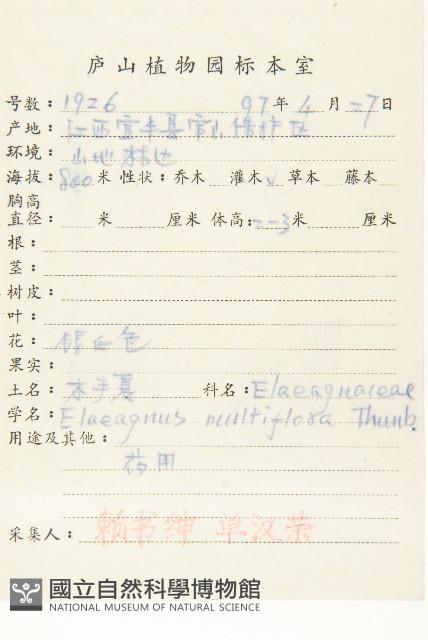 庐山植物园标本室
号数：1926 97年4月27日
产地：江西宜丰县官山保护区
环境：山地林边
海拔：800米 性状：乔木 灌木√ 草本 藤本
胸高
直径： 米 厘米 体高：二—3米 厘米
根：
茎：
树皮：
叶：
花：银白色
果实：
土名：木半夏 科名：Elaeagnaceae
学名：Elaeagnus multiflora Thunb.
用途及其他：
药用
采集人：赖书绅 单汉荣
國立自然科學博物館
NATIONAL MUSEUM OF NATURAL SCIENCE